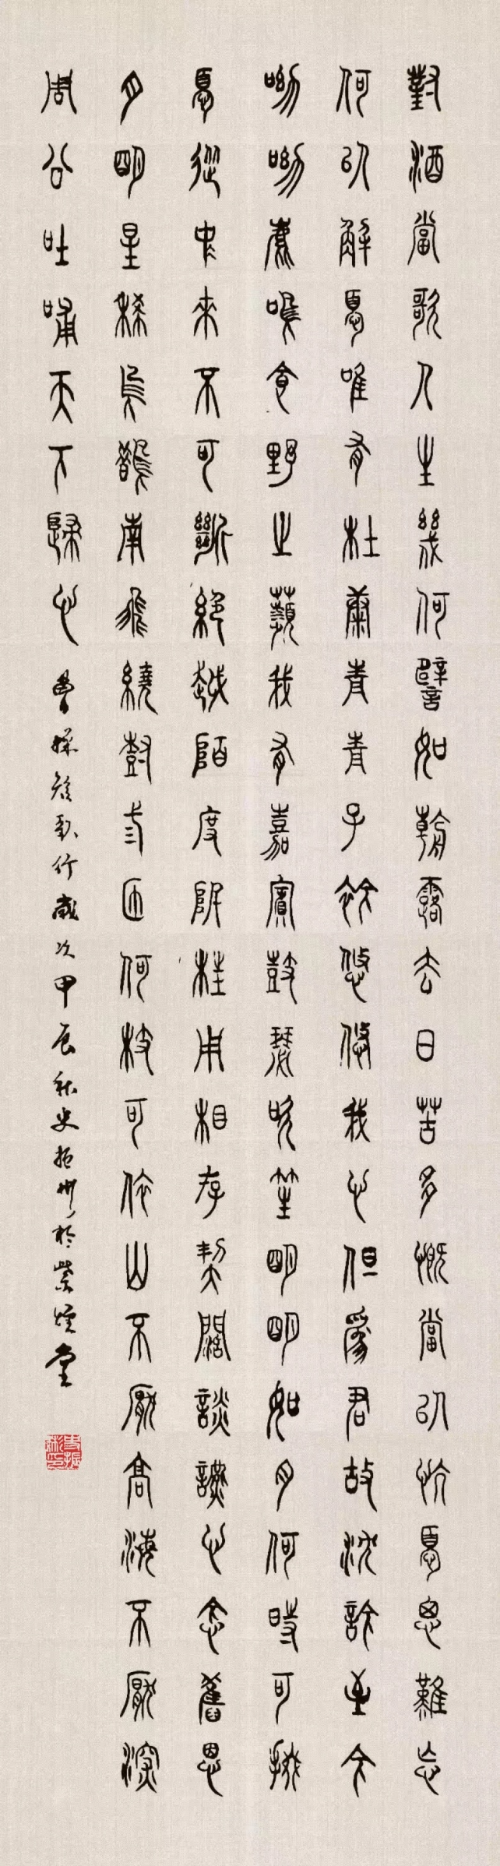 對酒當歌人生幾何譬如朝露去日苦多慨當以慷憂思難忘
何以解憂唯有杜康青青子衿悠悠我心但爲君故沈吟至今
呦呦鹿鳴食野之蘋我有嘉賓鼓瑟吹笙明明如月何時可掇
憂從中來不可斷絕越陌度阡枉用相存契闊談讌心念舊恩
月明星稀烏鵲南飛繞樹三匝何枝可依山不厭高海不厭深
周公吐哺天下歸心 曹操短歌行歲次甲辰秋史振於紫煙堂